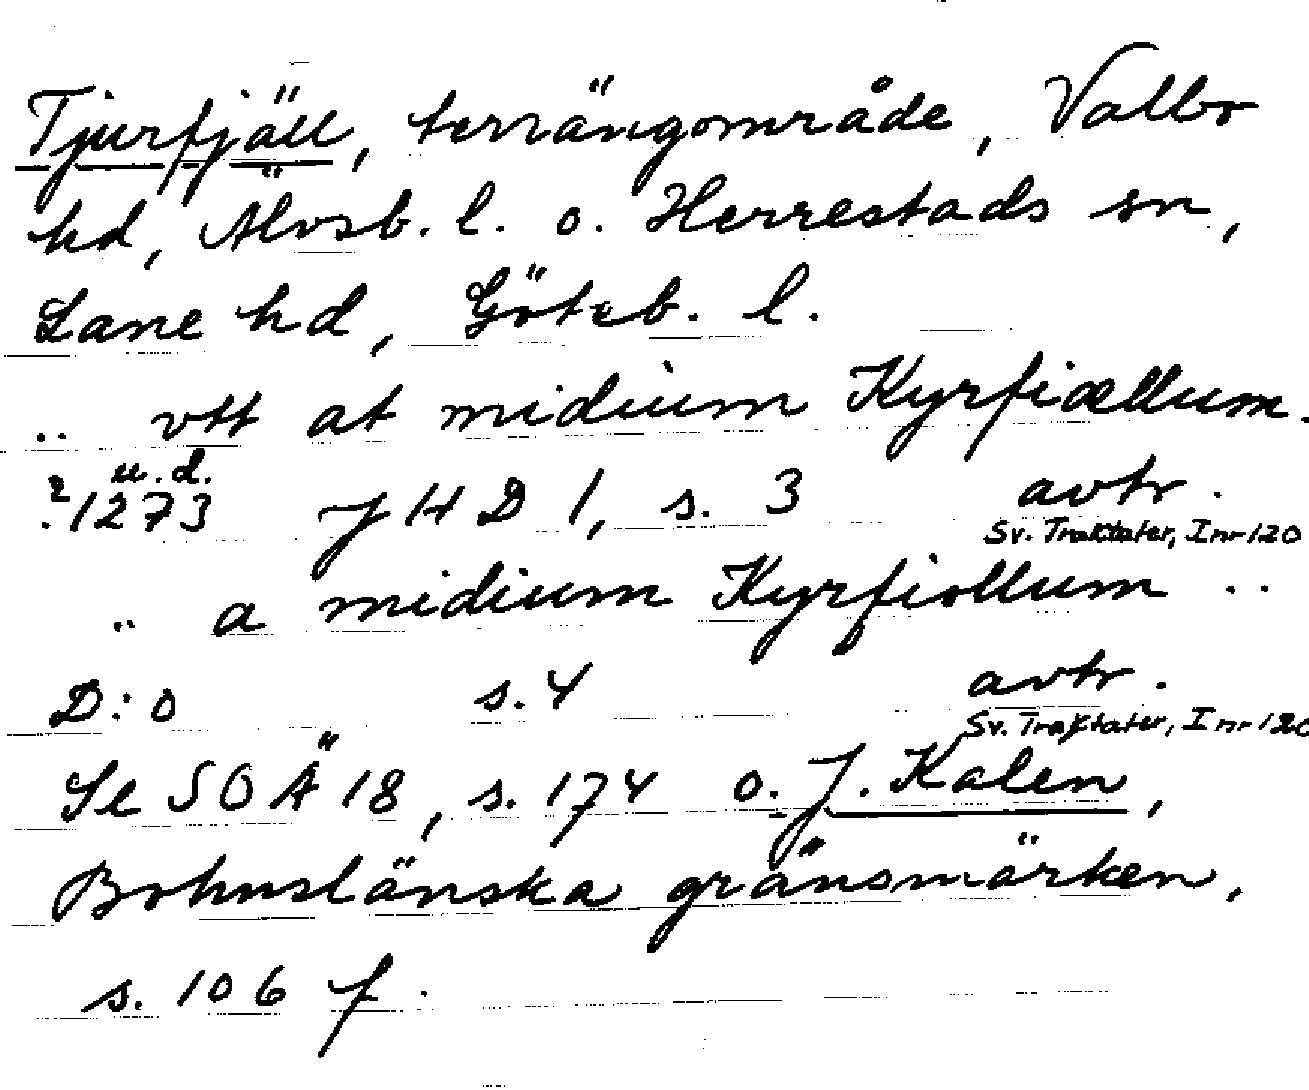 Tjurfjäll, terrängområde, Valbo
hd, Älvsb. l. o. Herrestads sn,
Lane hd, Göteb. l.
.. vtt at midium Kyrfiællum.
u.d.
?1273 JHD 1, s. 3 avtr.
Sv. Traktater, I nr 120
.. a midium Kyrfiollum ..
D:o s. 4 avtr.
Sv. Traktater, I nr 120
Se SOÄ 18, s. 174 o. J. Kalen,
Bohuslänska gränsmärken,
s. 106 f.